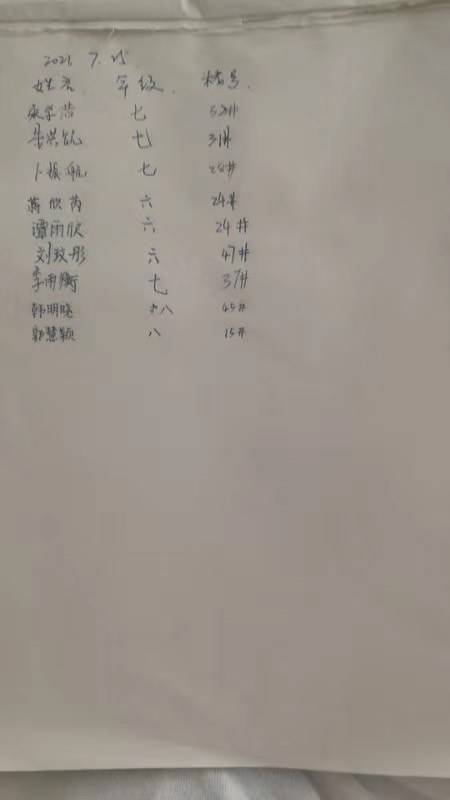 2021 7.15
姓名 年级 楼号
学浩 七 52#
洪 七 31#
卜振航 七
蒋欣芮 六 24#
谭雨欣 六 24#
刘玟彤 六 47#
李雨衡 七 37#
韩明晓 八 45#
郭慧颖 八 15#